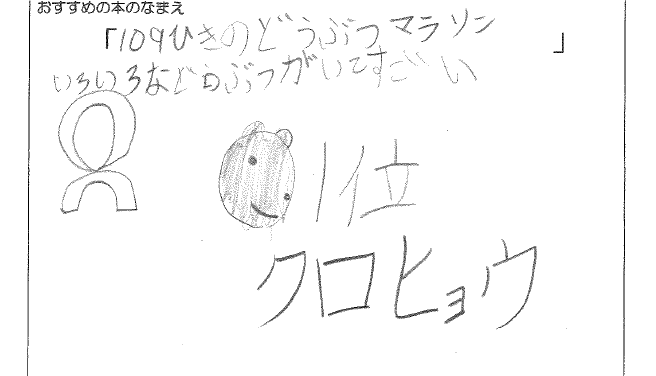 おすすめの本のなまえ
「109ひきのどうぶつマラソン」
いろいろなどうぶつがいてすごい
1位
クロヒョウ